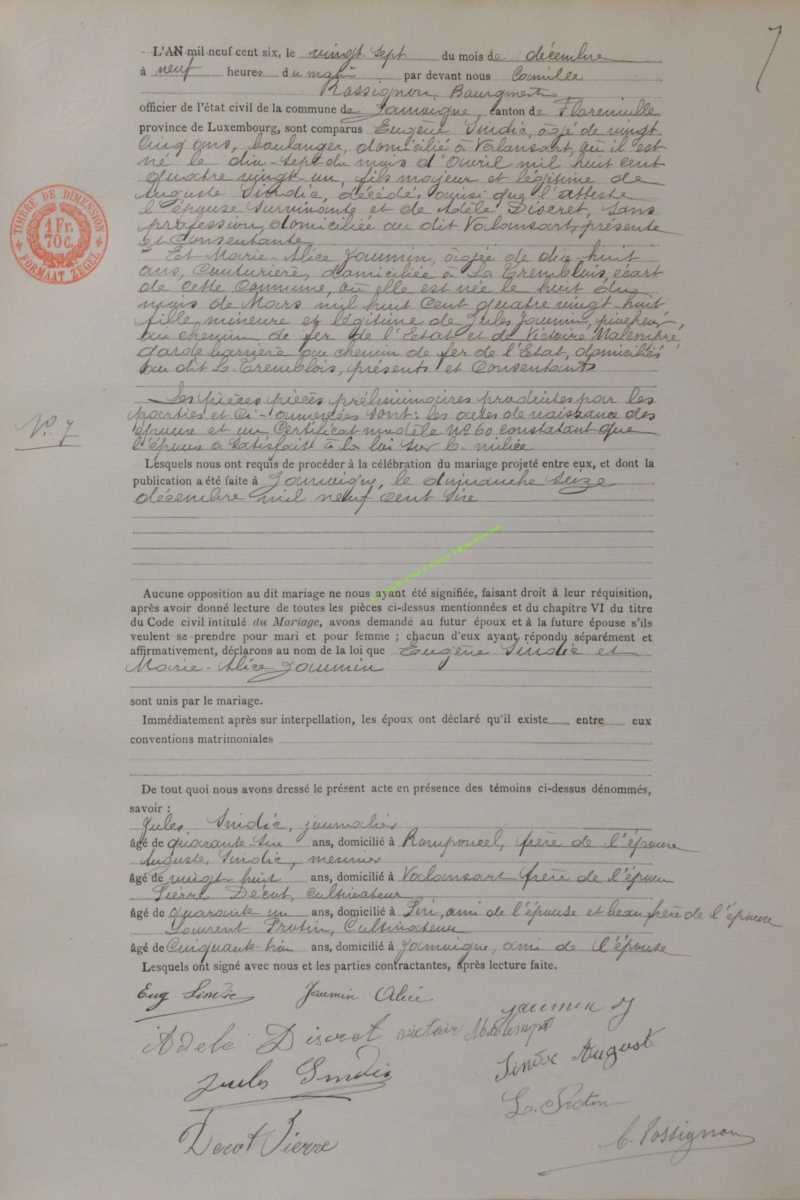 7
L'AN mil neuf cent six, le vingt sept du mois de décembre
à neuf heures du matin par devant nous Camille
Rossignon, Bourgmestre
officier de l'état civil de la commune de Jamoigne, canton de Florenville
province de Luxembourg, sont comparus Eugène Sindic, âgé de vingt
cinq ans, boulanger, domicilié à Valansart, où il est
né le dix-sept du mois d'Avril mil huit cent
quatre vingt un, fils majeur et légitime de
Auguste Sindic, décédé, ainsi que l'atteste
l'épouse survivante et de Adèle Discret, sans
profession, domiciliée au dit Valansart, présente
et Consentante
Et Marie-Alice Jaumin, âgée de dix huit
ans, Couturière, domiciliée à La Tremblois, écart
de cette Commune, où elle est née le huit du
mois de Mars mil huit Cent quatre vingt huit
fille mineure et légitime de Jules Jaumin, piocheur,
au chemin de fer de l'Etat et de Victoire Malempré
garde barrière au chemin de fer de l'Etat, domiciliés
au dit La Tremblois, présents et Consentants
Les pièces pièces préliminaires produites par les
parties et ci-annexées sont: les actes de naissance des
époux et un Certificat modèle No 60 constatant que
l'époux a satisfait à la loi sur la milice
No 7
Lesquels nous ont requis de procéder à la célébration du mariage projeté entre eux, et dont la
publication a été faite à Jamoigne, le dimanche seize
décembre mil neuf cent six
Aucune opposition au dit mariage ne nous ayant été signifiée, faisant droit à leur réquisition,
après avoir donné lecture de toutes les pièces ci-dessus mentionnées et du chapitre VI du titre
du Code civil intitulé du Mariage, avons demandé au futur époux et à la future épouse s'ils
veulent se prendre pour mari et pour femme ; chacun d'eux ayant répondu séparément et
affirmativement, déclarons au nom de la loi que Eugène Sindic et
Marie-Alice Jaumin
sont unis par le mariage.
Immédiatement après sur interpellation, les époux ont déclaré qu'il existe entre eux
conventions matrimoniales
De tout quoi nous avons dressé le présent acte en présence des témoins ci-dessus dénommés,
savoir :
Jules Sindic, journalier
âgé de quarante six ans, domicilié à Romponcel, frère de l'époux
Auguste Sindic, meunier
âgé de vingt huit ans, domicilié à Valansart frère de l'époux
Pierre Décot, Cultivateur
âgé de quarante un ans, domicilié à ami de l'épouse et beau frère de l'époux
Laurent Protin, Cultivateur
âgé de Cinquante ans, domicilié à Jamoigne, ami de l'épouse
Lesquels ont signé avec nous et les parties contractantes, après lecture faite.
Eug Sindic Jaumin Alice
Jaumin J
Adele Discret Victoire Malempré
Jules Sindic Sindic August
L. Protin
Decot Pierre
C. Rossignon
TIMBRE DE DIMENSION
1 Fr.
70 C.
FORMAAT ZEGEL